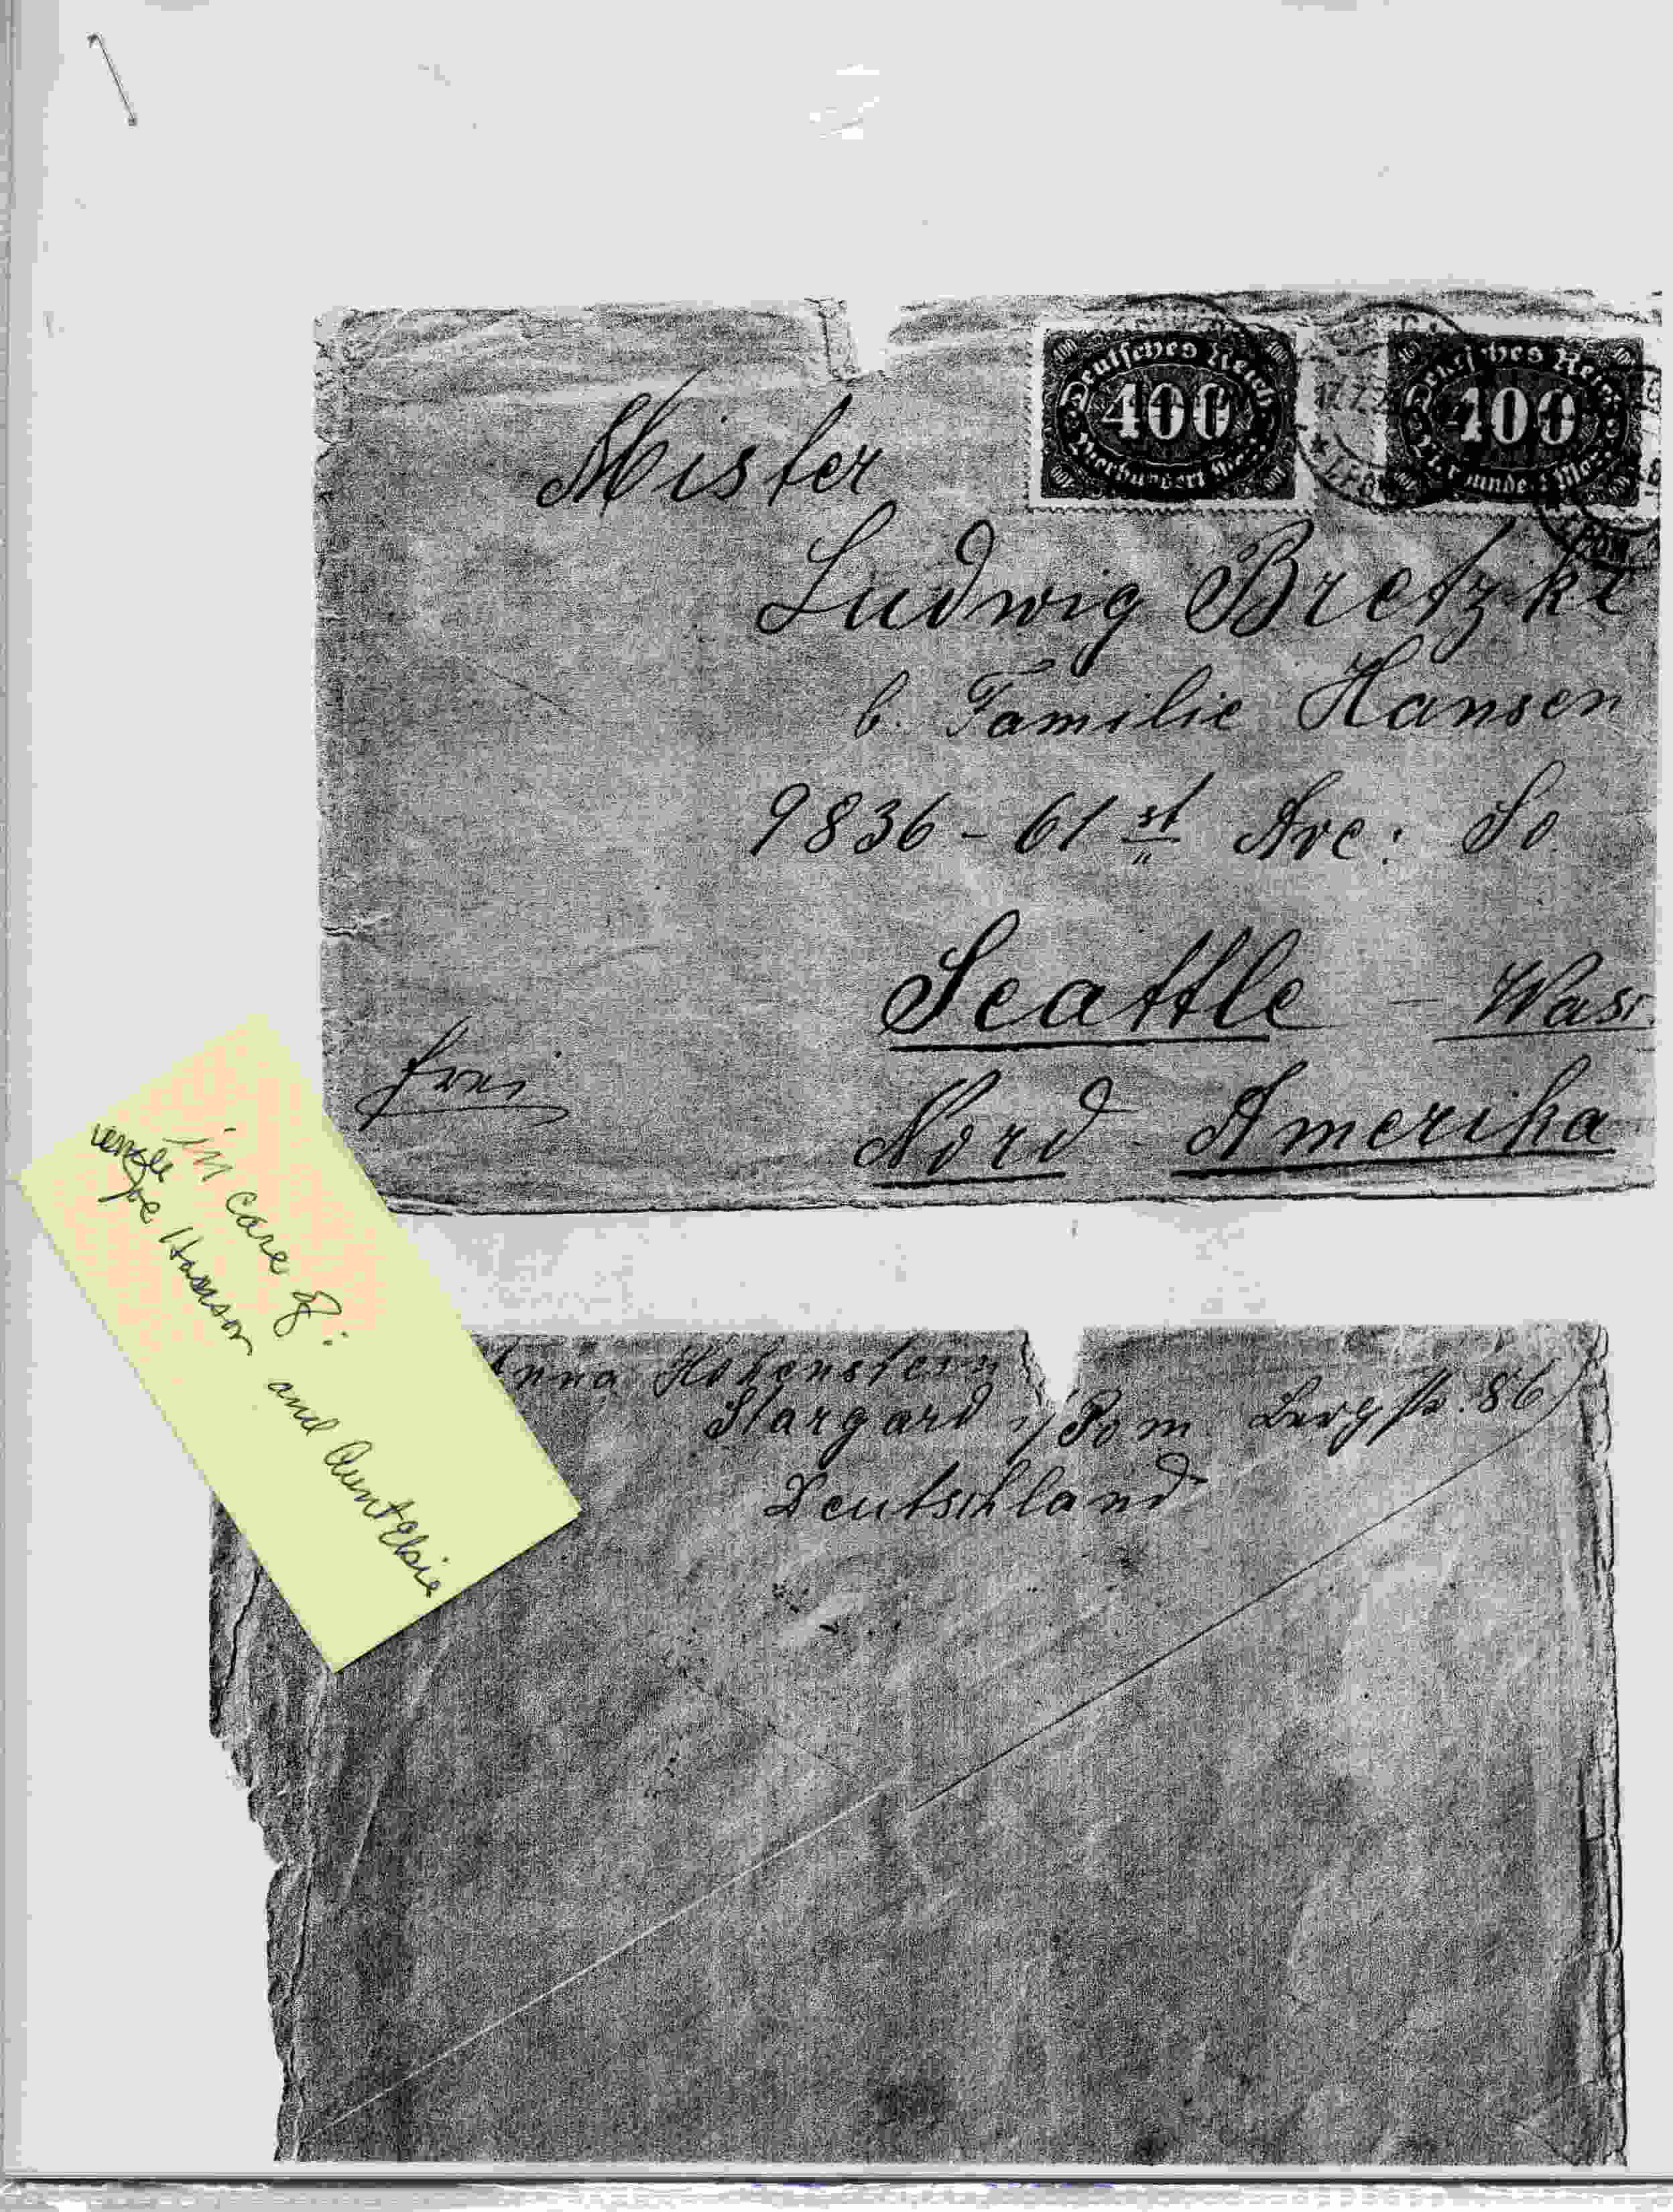 Deutsches Reich
400
Deutsches Reich
400
Mister
Ludwig Bretzke
b. Familie Hansen
9836 - 61st Ave: So.
Seattle - Wasr.
Nord Amerika
frei
in care of:
uncle Joe Hanson and Aunt Elsie
Anna Hohenstein
Stargard i/Pom Bergstr. 86
Deutschland